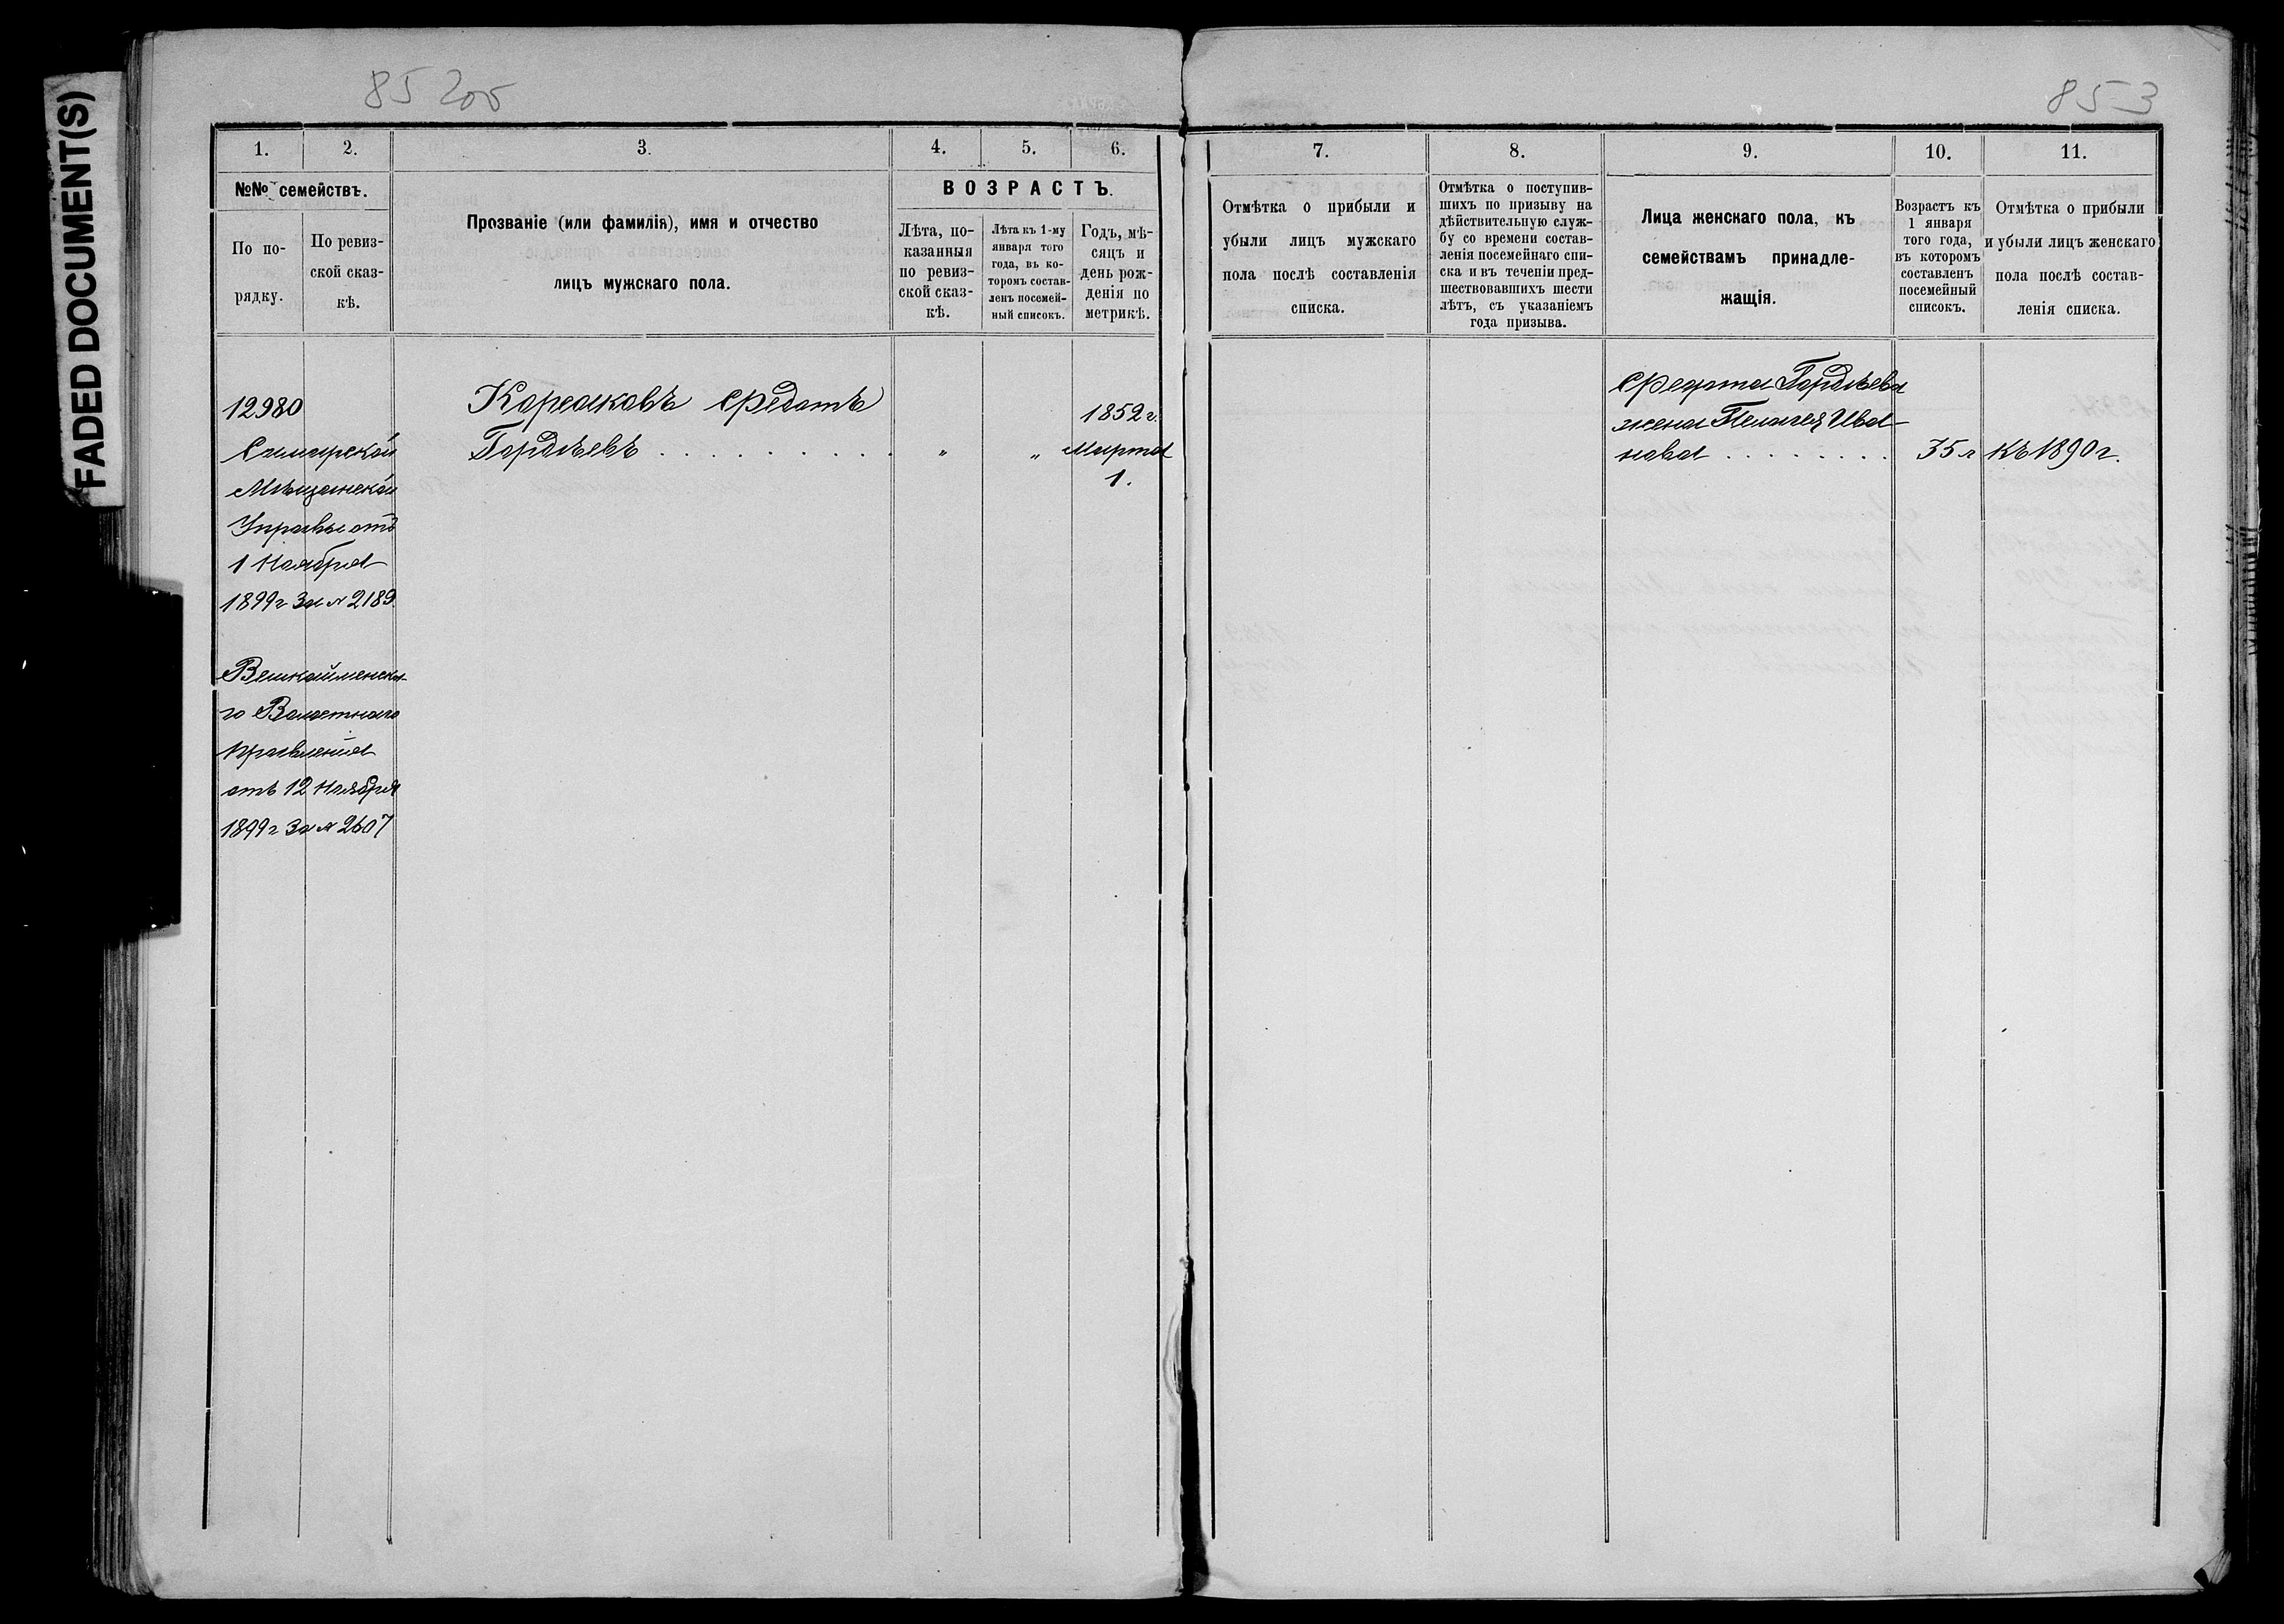 FADED DOCUMENT(S)
85 2об
853
1.
2.
3.
4.
5.
6.
№№ семействъ.
По по-
рядку.
По ревиз-
ской сказ-
кѣ.
Прозваніе (или фамилія), имя и отчество
лицъ мужскаго пола.
ВОЗРАСТЪ.
Лѣта, по-
казанныя
по ревиз-
ской сказ-
кѣ.
Лѣта къ 1-му
января того
года, въ ко-
торомъ состав-
ленъ посемей-
ный списокъ.
Годъ, мѣ-
сяцъ и
день рож-
денія по
метрикѣ.
12980
Симбирской
Мѣщанской
Управы отъ
1 Ноября
1899 г За № 2189.
Вешкайменска-
го Волостного
Правленія
отъ 12 Ноября
1899 г За № 2607
Корсаковъ Федотъ
Гордѣевъ . . . . . . . . . .
"
"
1852 г.
Марта
1.
7.
8.
9.
10.
11.
Отмѣтка о прибыли и
убыли лицъ мужскаго
пола послѣ составленія
списка.
Отмѣтка о поступив-
шихъ по призыву на
дѣйствительную служ-
бу со времени состав-
ленія посемейнаго спи-
ска и въ теченіи пред-
шествовавшихъ шести
лѣтъ, съ указаніемъ
года призыва.
Лица женскаго пола, къ
семействамъ принадле-
жащія.
Возрастъ къ
1 января
того года,
въ которомъ
составленъ
посемейный
списокъ.
Отмѣтка о прибыли
и убыли лицъ женскаго
пола послѣ состав-
ленія списка.
Федота Гордѣева
жена Пелагея Ива-
нова . . . . . . . .
35 л
Къ 1890 г.